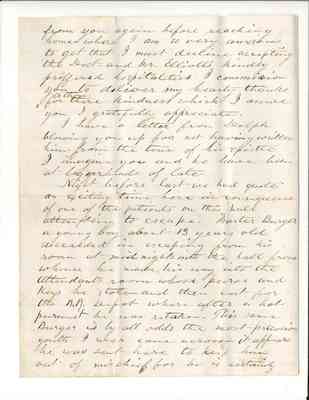 from you again before reaching
home where I am so very anxious
to get that I must decline accepting
the Doct. and Mr. Elliotts kindly
proffered hospitalities I commission
you to deliver my hearty thanks
for their kindness which I assure
you I gratefully appreciate.
I have a letter from Ralph
blowing you up for not having written
him from the tone of his epistle
I imagine you and he have been
at loggerheads of late
Night before last we had quite
an exciting time here in consequence
of one of the patients on this hall
attempting to escape. Master Burger
a young boy about 13 years old
succeeded in escaping from his
room at midnight into the hall from
whence he made his way into the
Attendants room whose purse and
keys he stole and then cut for
the R.R. depot where after a hot
pursuit he was retaken. This same
Burger is by all odds the most precocious
youth I ever came across it appears
he was sent here to keep him
out of mischief for he is certainly